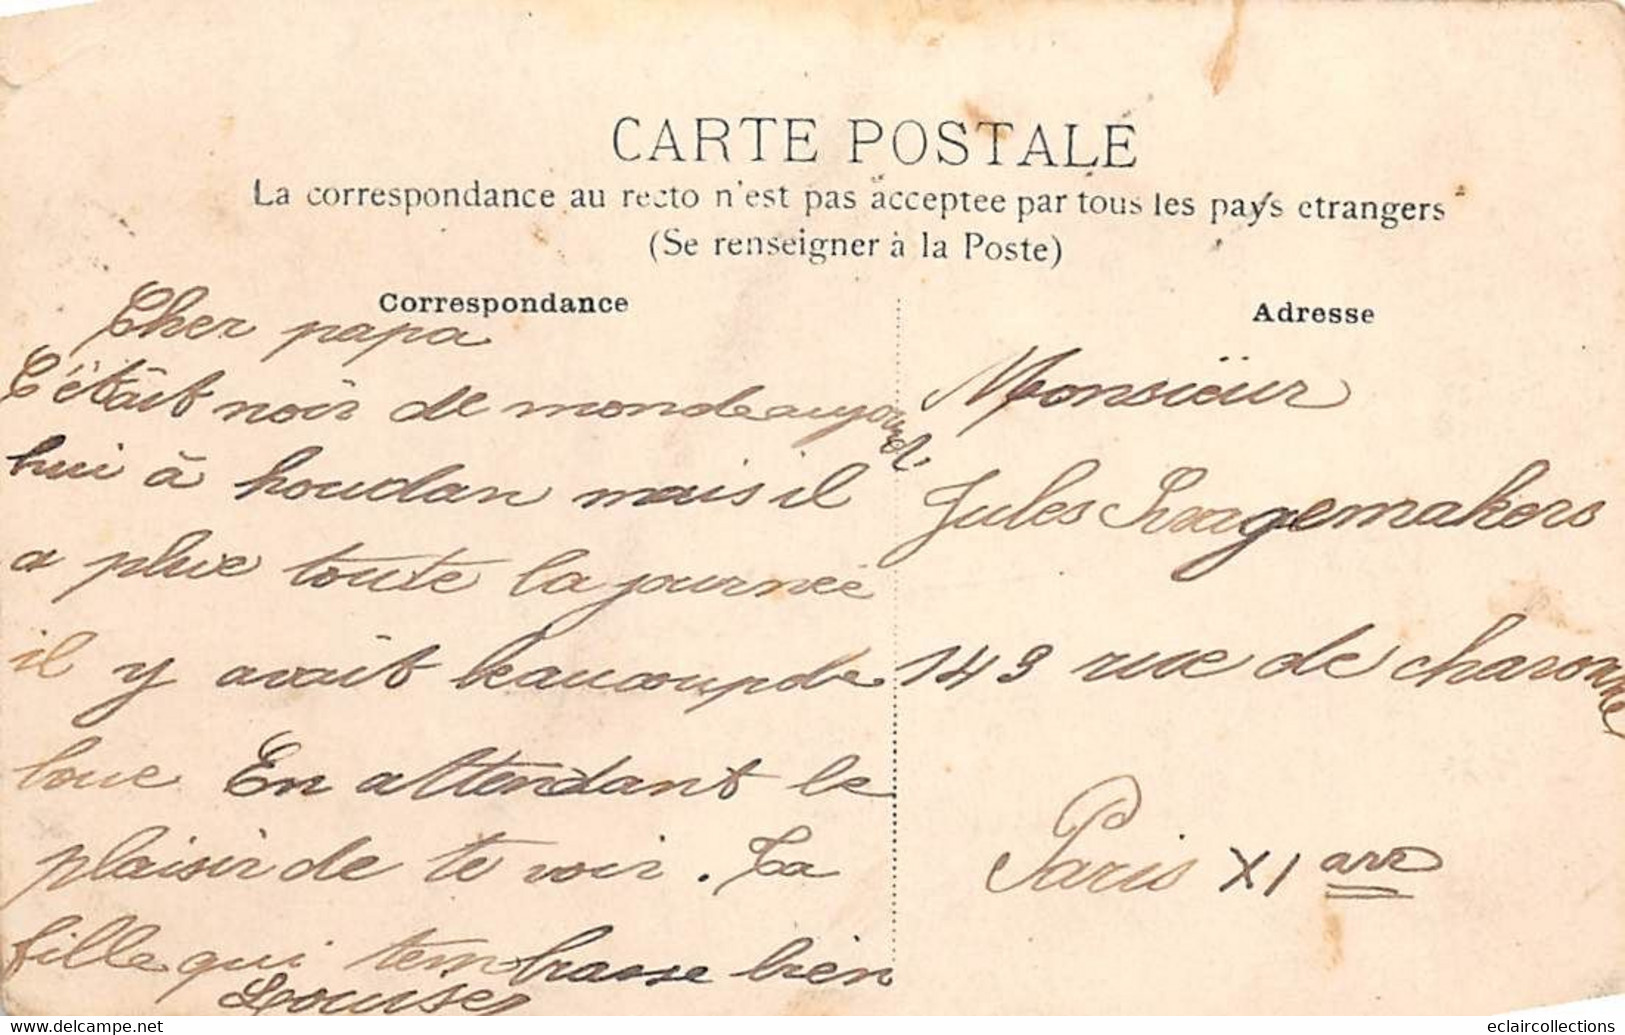 CARTE POSTALE
La correspondance au recto n'est pas acceptee par tous les pays etrangers
(Se renseigner à la Poste)
Correspondance
Cher papa
C'était noir de monde aujourd'
hui à houdan mais il
a plue toute la journée
il y avait beaucoup de
boue En attendant le
plaisir de te voir. Ta
fille qui tembrasse bien
Louise
Adresse
Monsieur
Jules
143 rue de charonne
Paris XI arr
eclaircollections